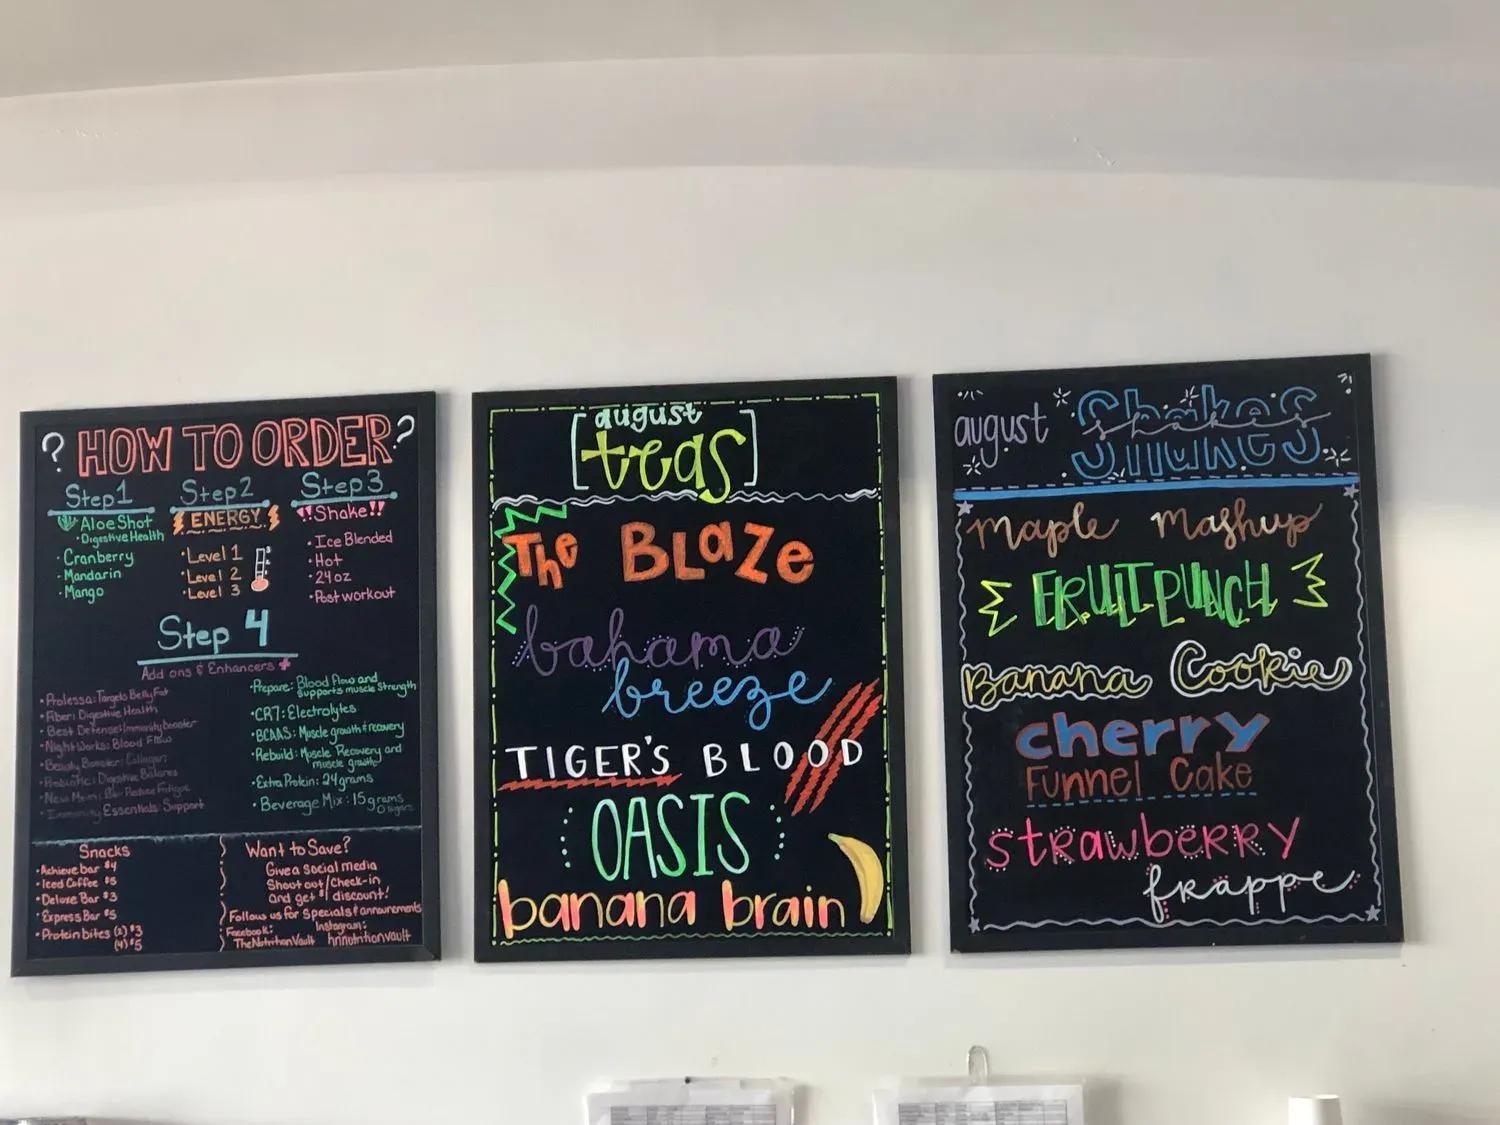 ? HOW TO ORDER ?
Step 1
Aloe Shot
• Digestive Health
• Cranberry
• Mandarin
• Mango
Step 2
ENERGY
• Level 1
• Level 2
• Level 3
Step 3
!! Shake !!
• Ice Blended
• Hot
• 24oz
• Post workout
Step 4
Add ons & Enhancers
• Prolessa: Targets Belly Fat
• Fiber: Digestive Health
• Best Defense: Immunity Booster
• Night Works: Blood Flow
• Beauty Booster: Collagen
• Probiotic: Digestive Balance
• New Mom:
• Immunity Essentials Support
• Prepare: Blood flow and
supports muscle strength
• CR7: Electrolytes
• BCAAS: Muscle growth & recovery
• Rebuild: Muscle Recovery and
muscle growth
• Extra Protein: 24 grams
• Beverage Mix: 15 grams
Snacks
• Achieve bar $4
• Iced Coffee $5
• Deluxe Bar $3
• Express Bar $5
• Protein bites (2) $3
(4) $5
Want to Save?
Give a social media
Shout out/Check-in
and get $1 discount!
Follow us for specials & announcements
Facebook:
TheNutritionVault
Instagram:
hnnutritionvault
[august
teas]
The BLaZe
bahama
breeze
TIGER'S BLOOD
OASIS
banana brain
august Shakes
Maple Mashup
FRUIT PUNCH
Banana Cookie
cherry
Funnel Cake
strawberry
frappe